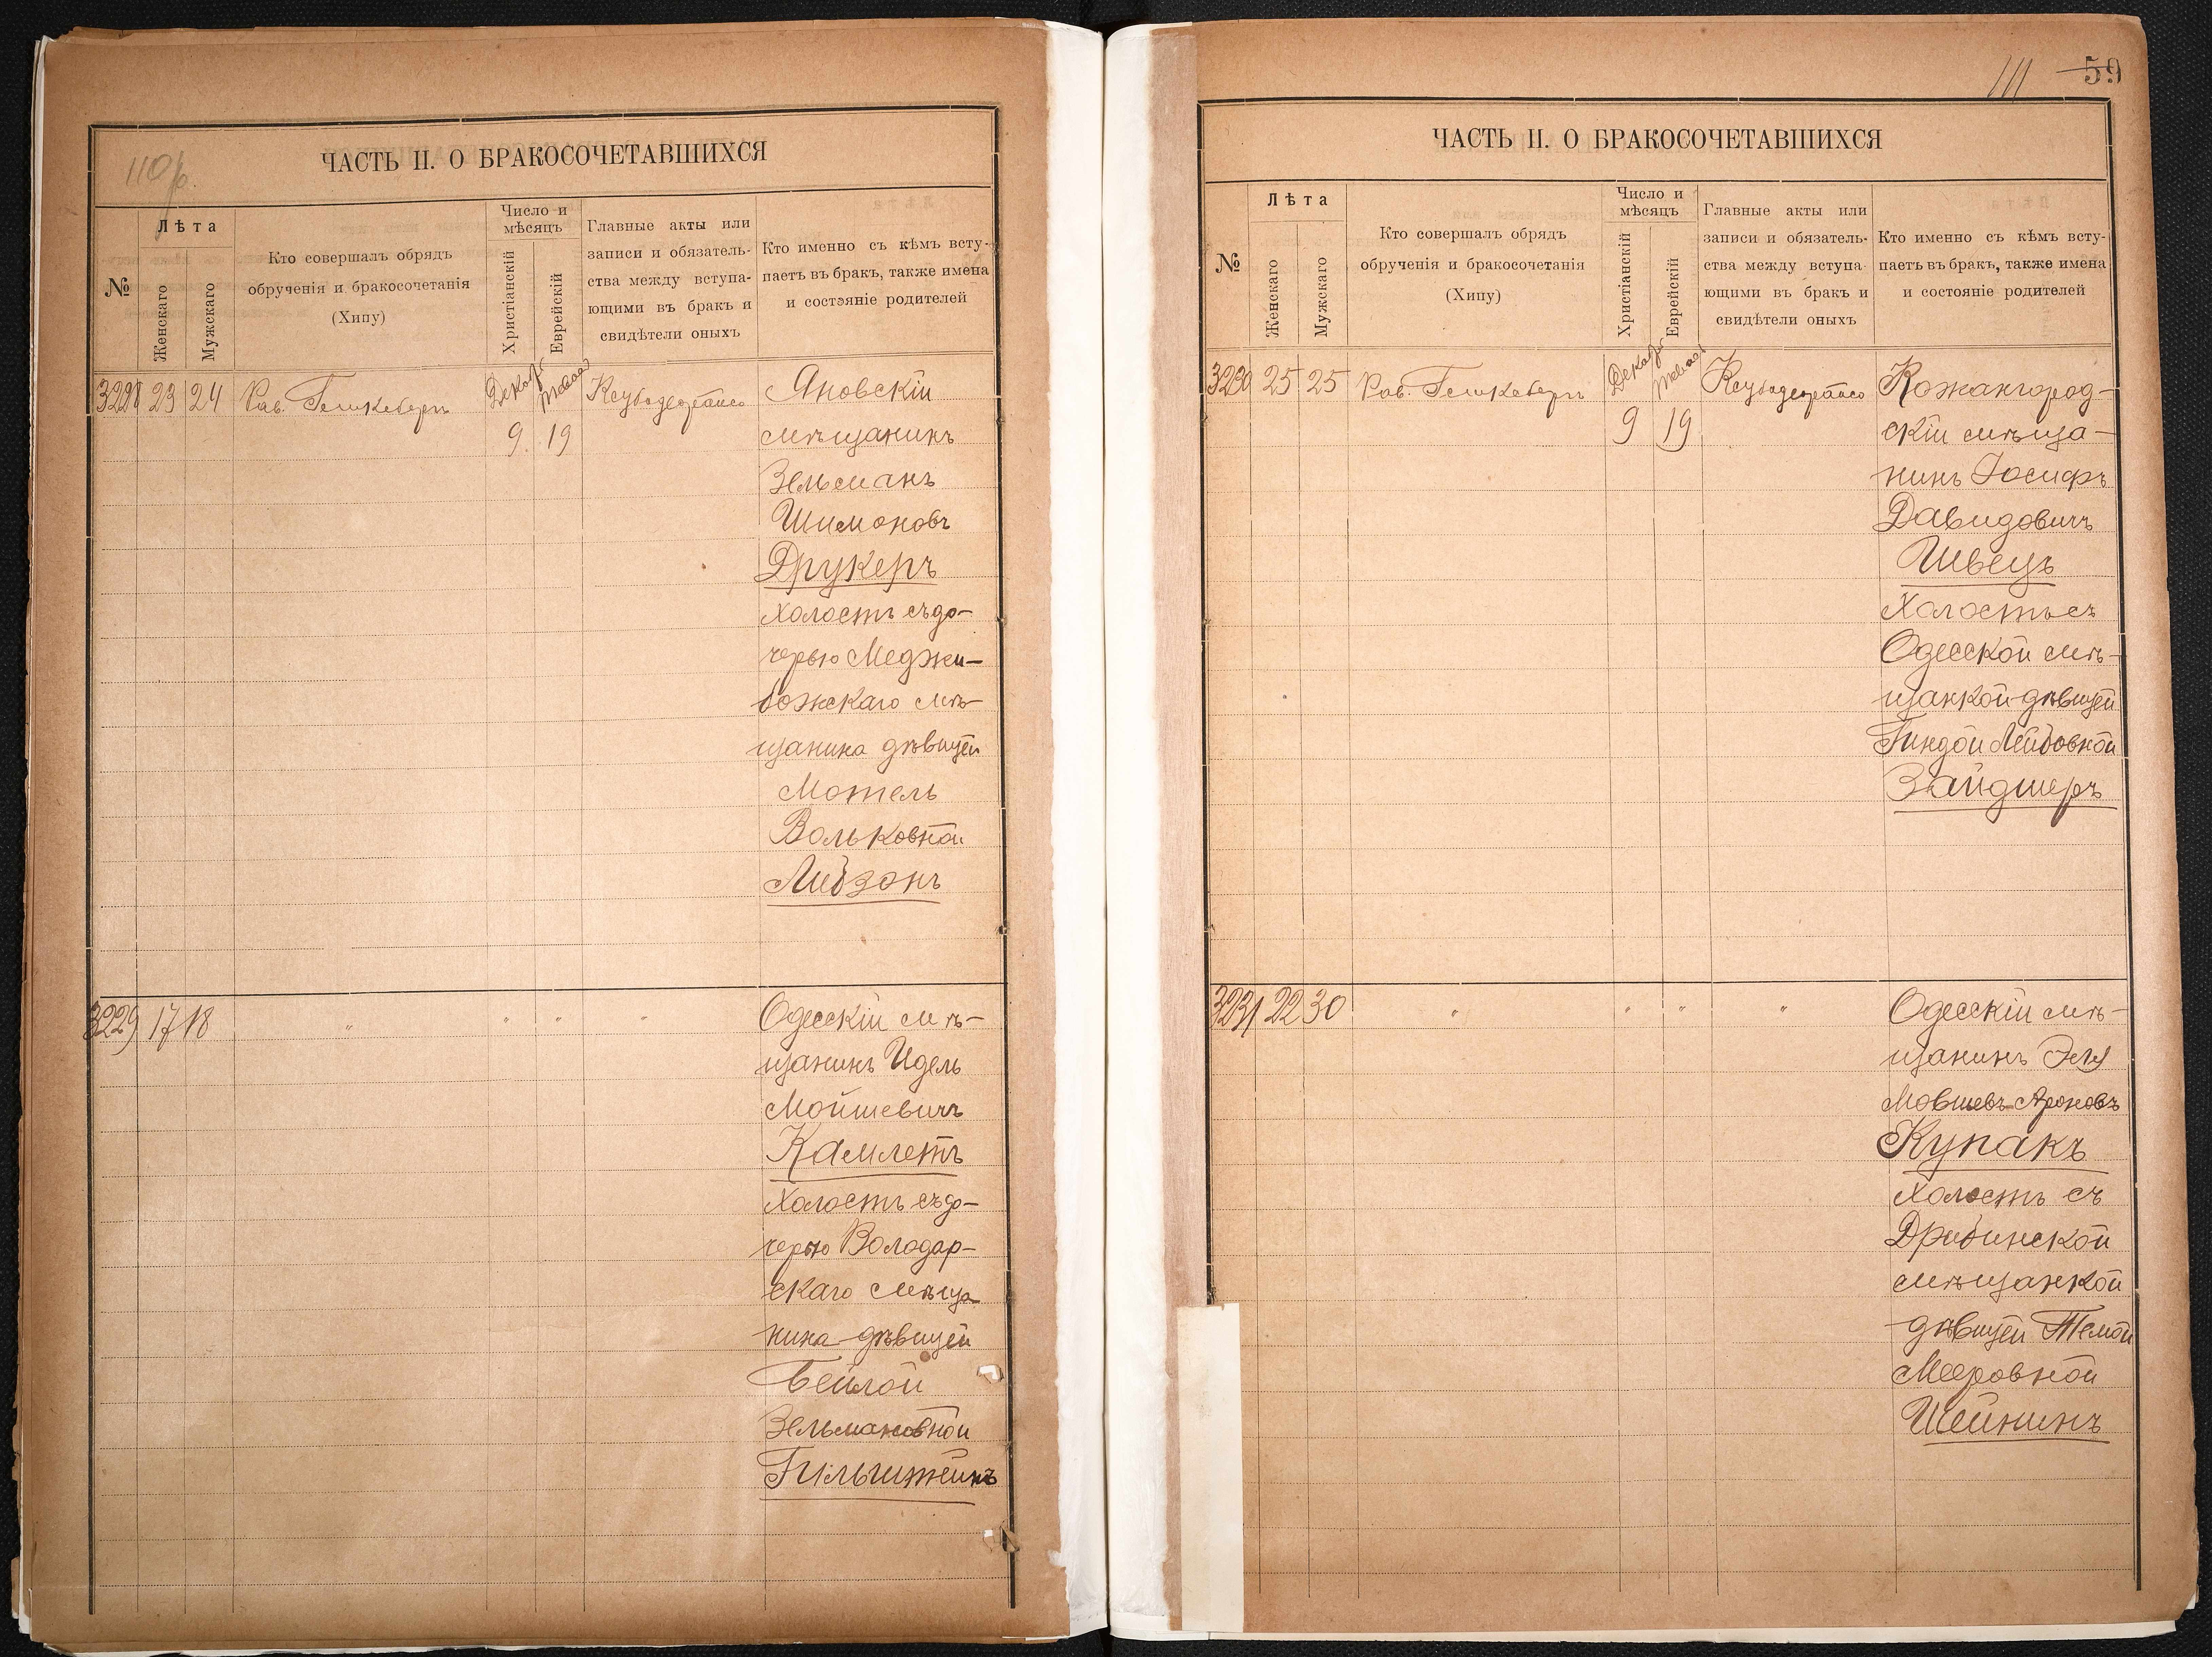 110
ЧАСТЬ II. О БРАКОСОЧЕТАВШИХСЯ
№
Лѣта
Женскаго
Мужскаго
Кто совершалъ обрядъ
обрученія и бракосочетанія
(Хипу)
Число и
мѣсяцъ
Христіанскій
Еврейскій
Главные акты или
записи и обязатель-
ства между вступа-
ющими въ бракъ и
свидѣтели оныхъ
Кто именно съ кѣмъ всту-
паетъ въ бракъ, также имена
и состояніе родителей
3228 23 24 Рав. Декабр
9 19
Яновскій
мѣщанинъ
Зельманъ
Шимоновъ
Друкеръ
холостъ съ до-
черью Меджи-
божскаго мѣ-
щанина дѣвицей
Мотель
Вольковной
Либзонъ
3229 17 18 " " " "
Одесскій мѣ-
щанинъ Идель
Мойшевичъ
Камлетъ
холостъ съ до-
черью Володар-
скаго мѣща-
нина дѣвицей
Бейлой
Зельмановной
Гильштейнъ
111 59
ЧАСТЬ II. О БРАКОСОЧЕТАВШИХСЯ
№
Лѣта
Женскаго
Мужскаго
Кто совершалъ обрядъ
обрученія и бракосочетанія
(Хипу)
Число и
мѣсяцъ
Христіанскій
Еврейскій
Главные акты или
записи и обязатель-
ства между вступа-
ющими въ бракъ и
свидѣтели оныхъ
Кто именно съ кѣмъ всту-
паетъ въ бракъ, также имена
и состояніе родителей
3230 25 25 Рав. Декабр
9 19
Кожангород-
скій мѣща-
нинъ Іосифъ
Давидовичъ
Швецъ
холостъ съ
Одесской мѣ-
щанкой дѣвицей
Гиндой Лейбовной
Зайдшеръ
3231 22 30 " " " "
Одесскій мѣ-
щанинъ Эля
Мовшевъ-Ароновъ
Купакъ
холостъ съ
Дрибинской
мѣщанкой
дѣвицей Темой
Мееровной
Шейнинъ